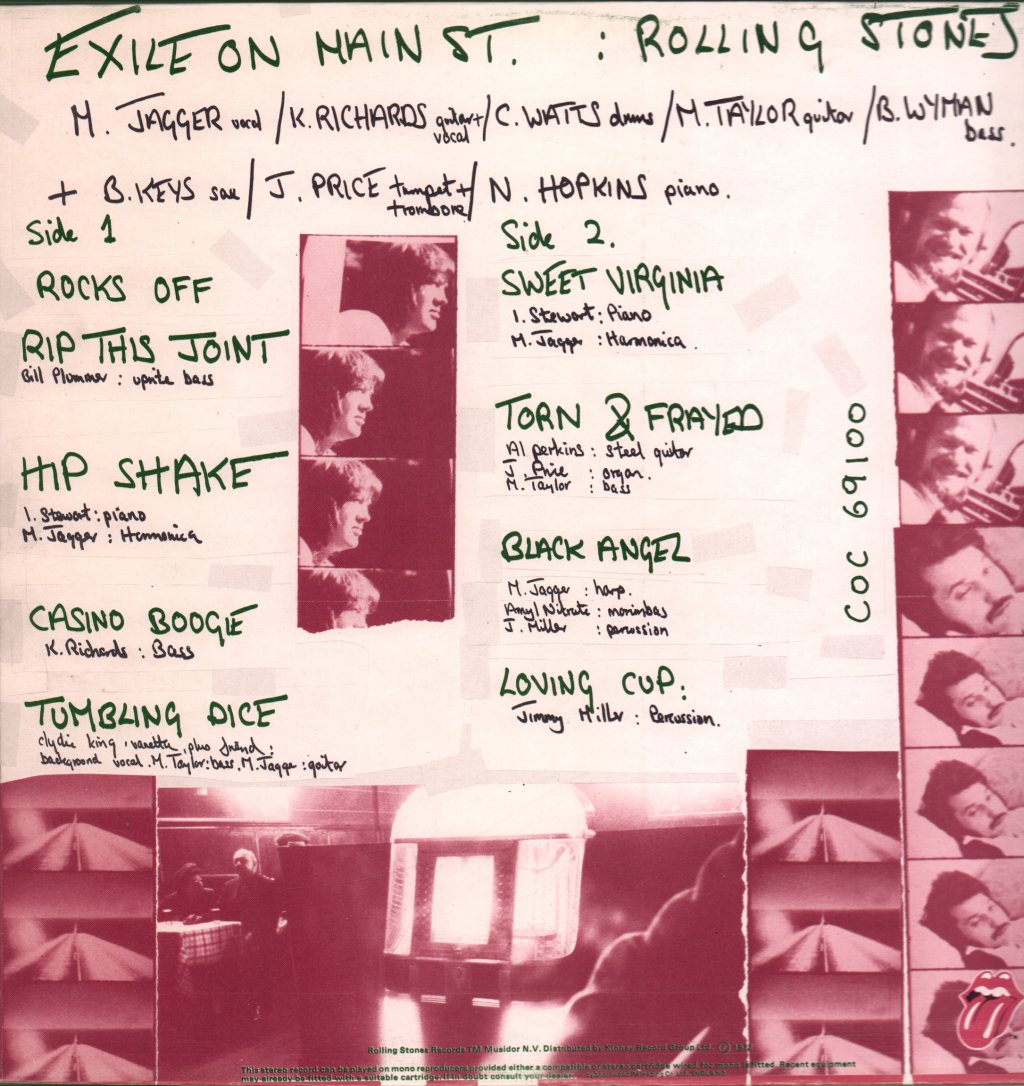 EXILE ON MAIN ST. : ROLLING STONES
M. JAGGER vocal / K. RICHARDS guitar + vocal / C. WATTS drums / M. TAYLOR guitar / B. WYMAN bass.
+ B. KEYS sax / J. PRICE trumpet + trombone / N. HOPKINS piano.
Side 1
ROCKS OFF
RIP THIS JOINT
Bill Plummer : uprite bass
HIP SHAKE
I. Stewart : piano
M. Jagger : Harmonica
CASINO BOOGIE
K. Richards : Bass
TUMBLING DICE
Clydie King, vanetta, plus friend :
background vocal. M. Taylor : bass. M. Jagger : guitar
Side 2.
SWEET VIRGINIA
I. Stewart : Piano
M. Jagger : Harmonica.
TORN & FRAYED
Al perkins : steel guitar
J. Price : organ.
M. Taylor : bass
BLACK ANGEL
M. Jagger : harp.
Amyl Nitrate : marimbas
J. Miller : percussion
LOVING CUP :
Jimmy Miller : Percussion.
COC 69100
Rolling Stones Records TM Musidor N.V. Distributed by Kinney Record Group Ltd. ℗ 1972
This stereo record can be played on mono reproducers provided either a compatible or stereo cartridge wired for mono is fitted. Recent equipment
may already be fitted with a suitable cartridge. If in doubt consult your dealer.